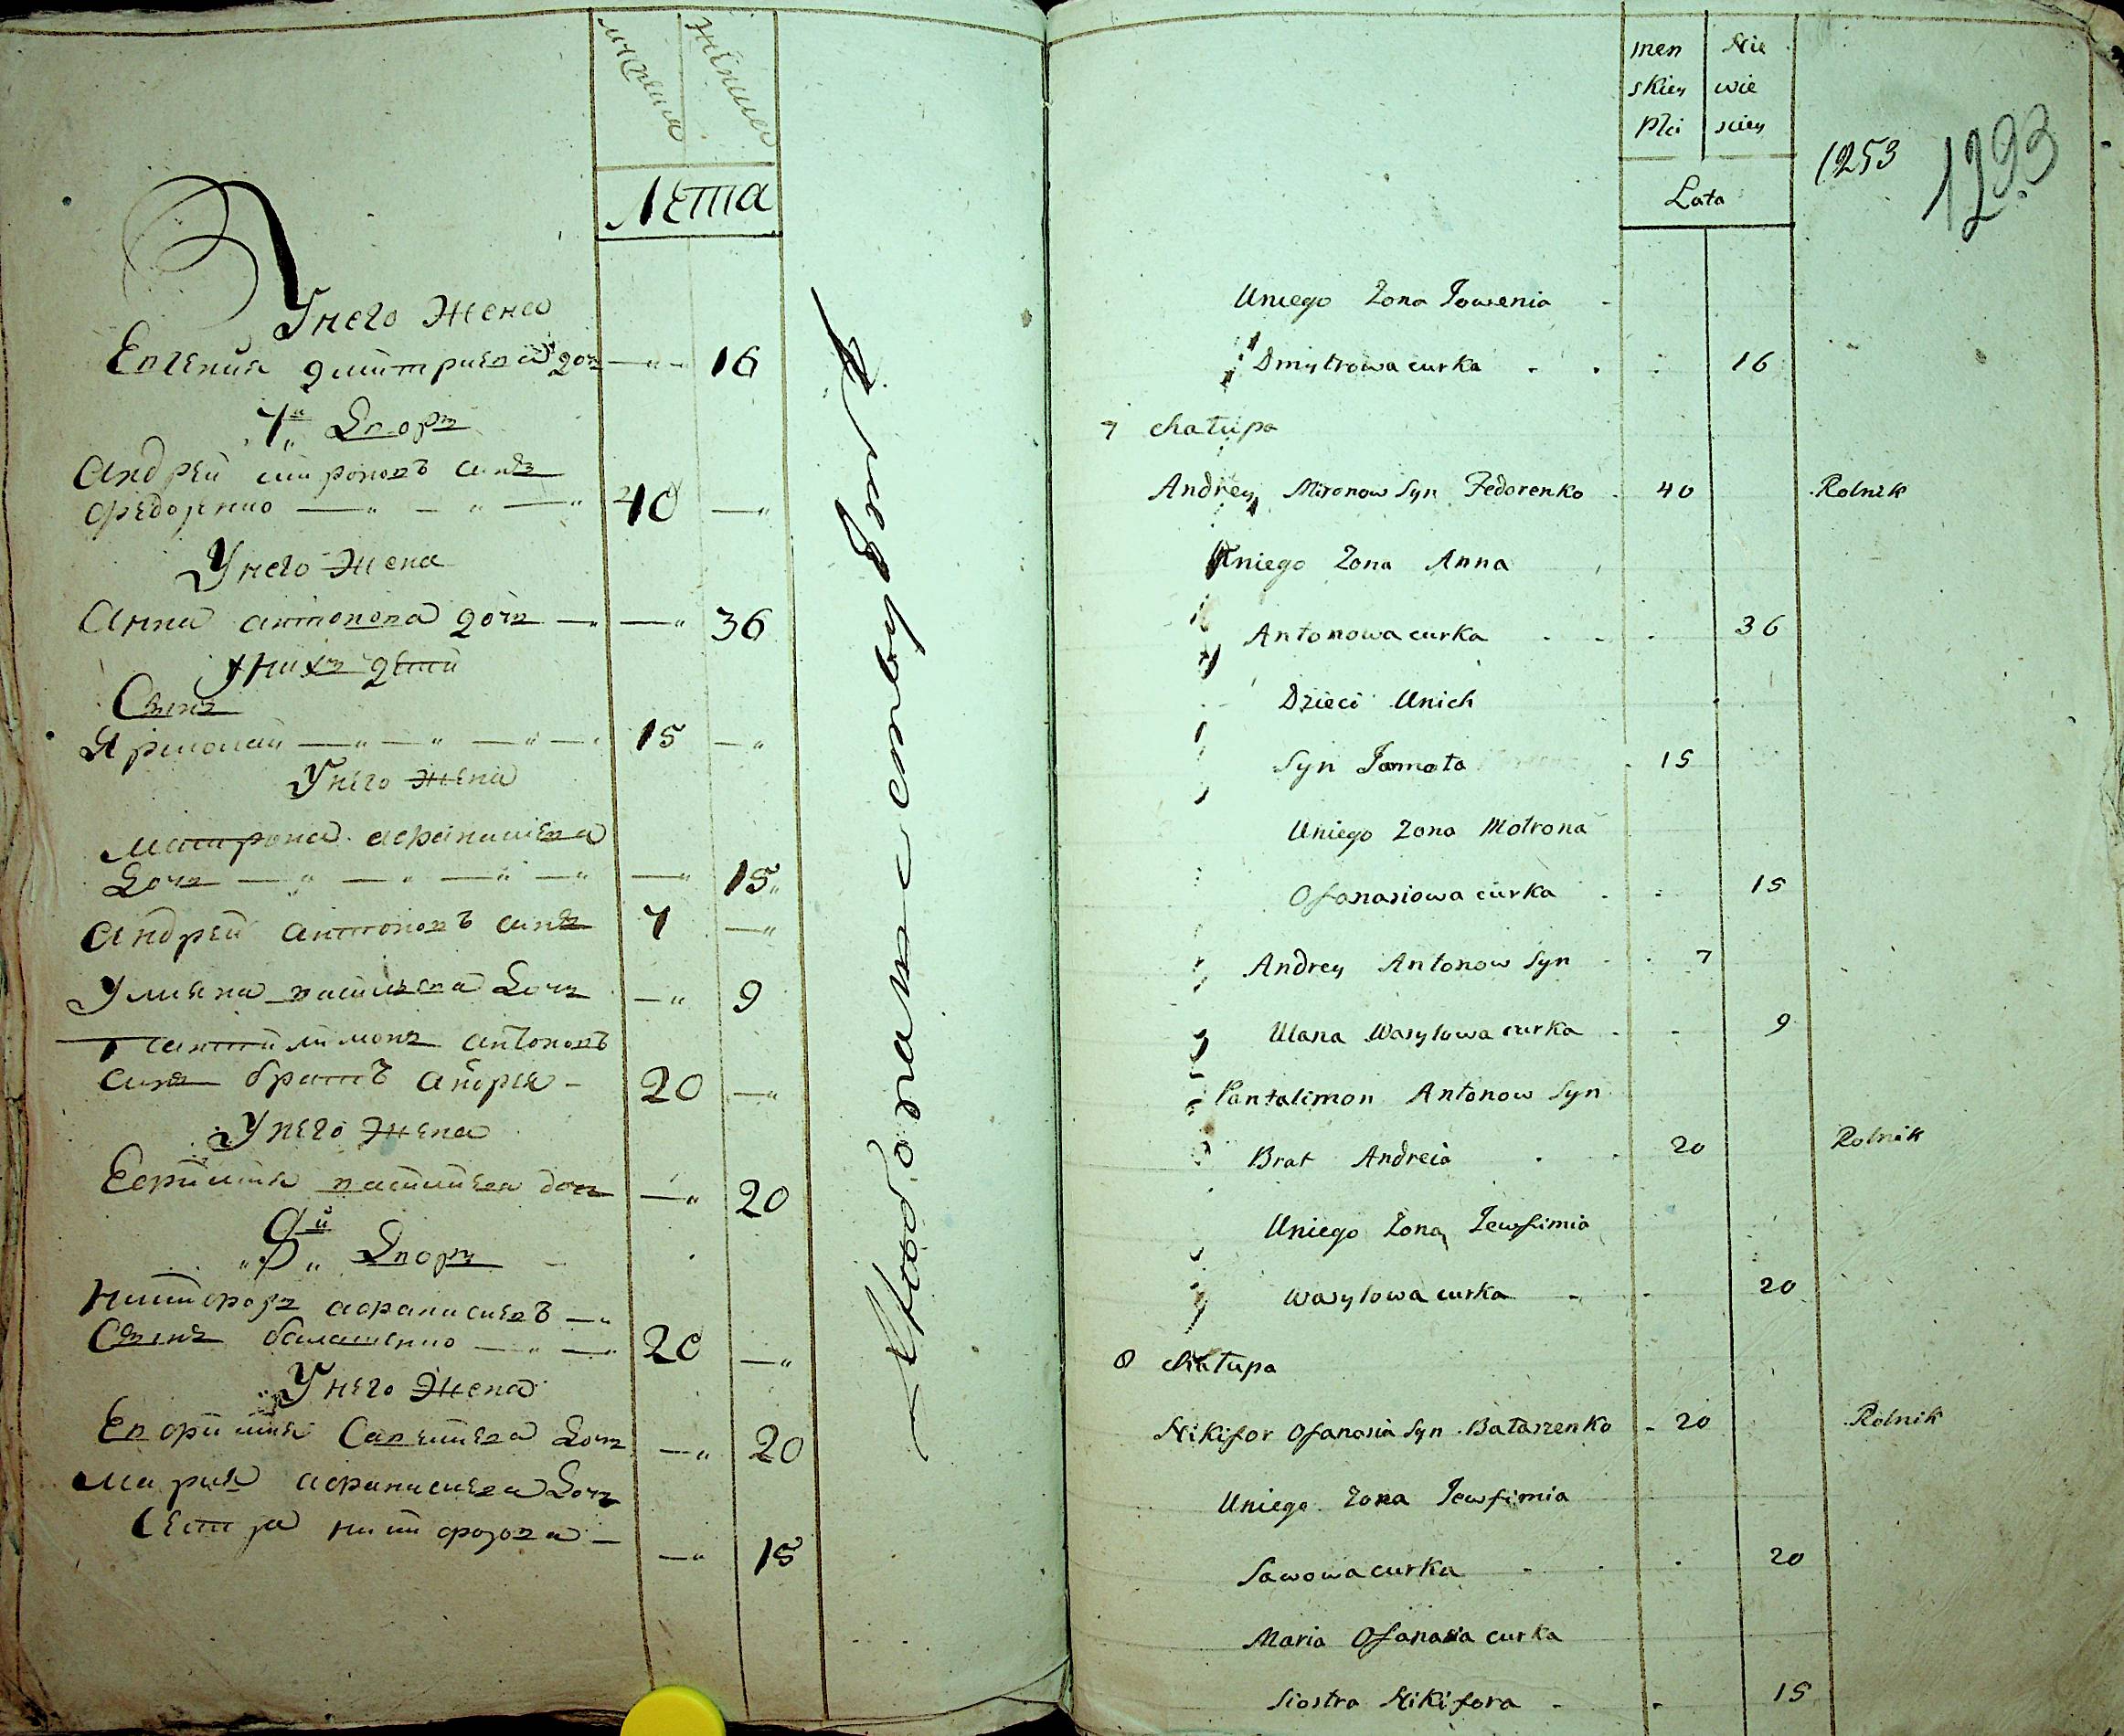 Лета
У него жена
Евгения дмитриева доч — 16
7й Двор
Андрей миронов сын
федоренко — 40 —
У него жена
Анна антонова доч — — 36
У них дети
Сын
Ярмолай — 15 —
У него жена
Матрона афанасиева
Доч — — 15
Андрей антонов сын 7 —
Улиана васильева Доч — 9
Пантилимон антонов
сын брат андрея — 20 —
У него жена
Ефимия васильева доч — 20
8й Двор
Никифор афанасиев —
Сын балашенко — 20 —
У него жена
Евфимия Савина Доч — 20
Мария афанасиева Доч
Сестра никифорова —
— 15
men Nie
skiey wie
Płci sciey
Lata
1253 1293
Uniego Zona Jowenia
Dmytrowa curka 16
7 chałupa
Andrey Mironow Syn Fedorenko 40 Rolnik
Uniego Zona Anna
Antonowa curka 36
Dzieci Unich
Syn 15
Uniego Zona Motrona
Ofanasiowa curka 15
Andrey Antonow Syn 7
Ulana Wasylowa curka 9
Pantalimon Antonow Syn
Brat Andreia 20 Rolnik
Uniego Zona Jewfimia
Wasylowa curka 20
8 chałupa
Nikifor Ofanasia Syn Bałaszenko 20 Rolnik
Uniego Zona Jewfimia
Sawowa curka 20
Maria Ofanasia curka
Siostra Nikifora 15